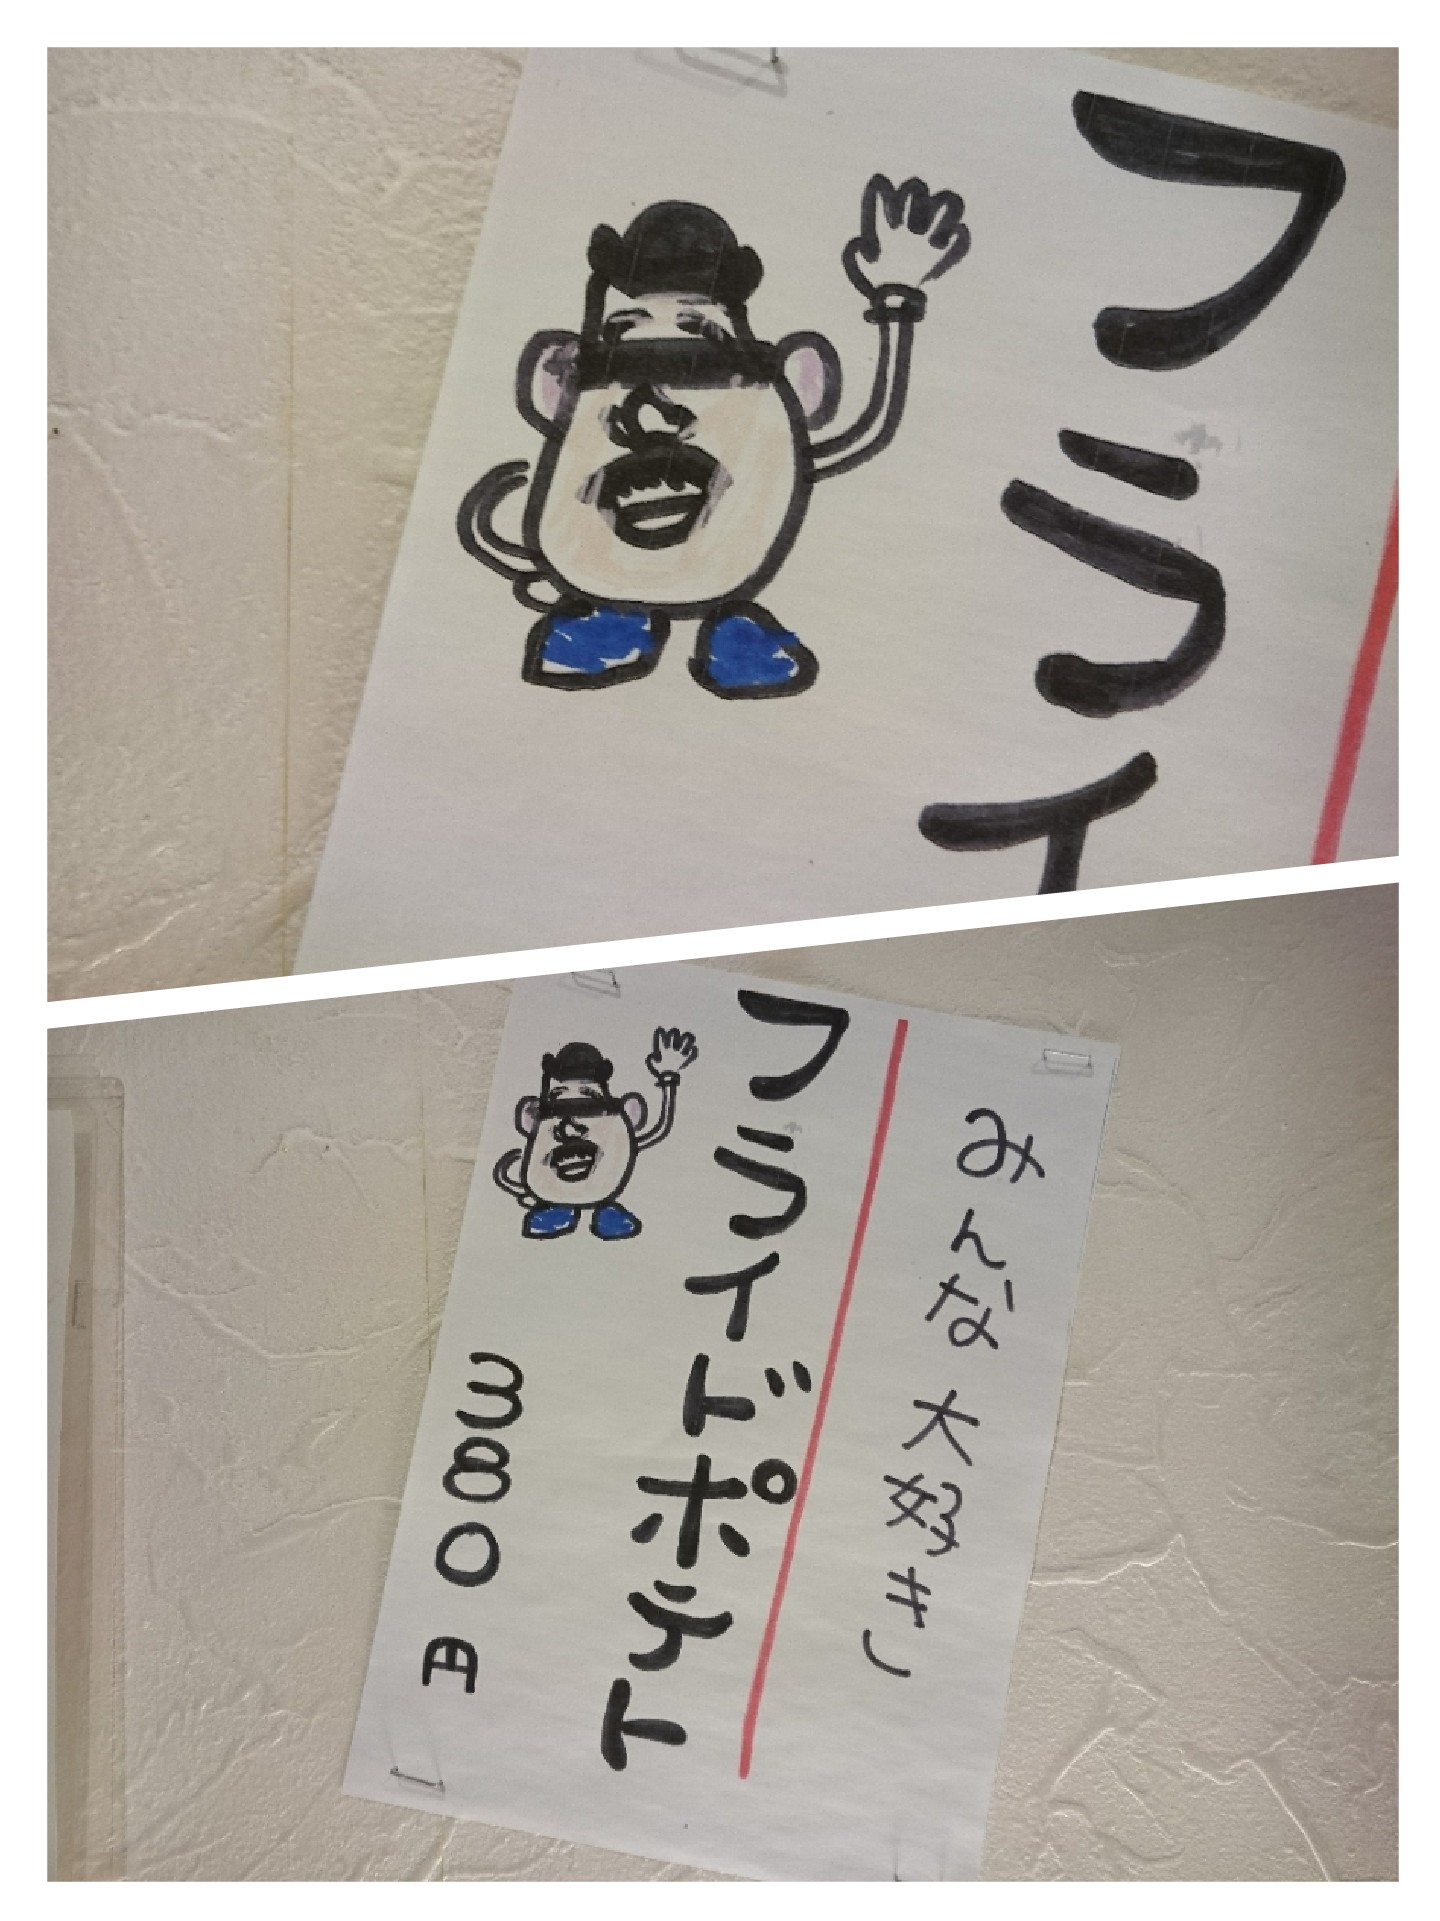 フライ
みんな大好き
フライドポテト
380円